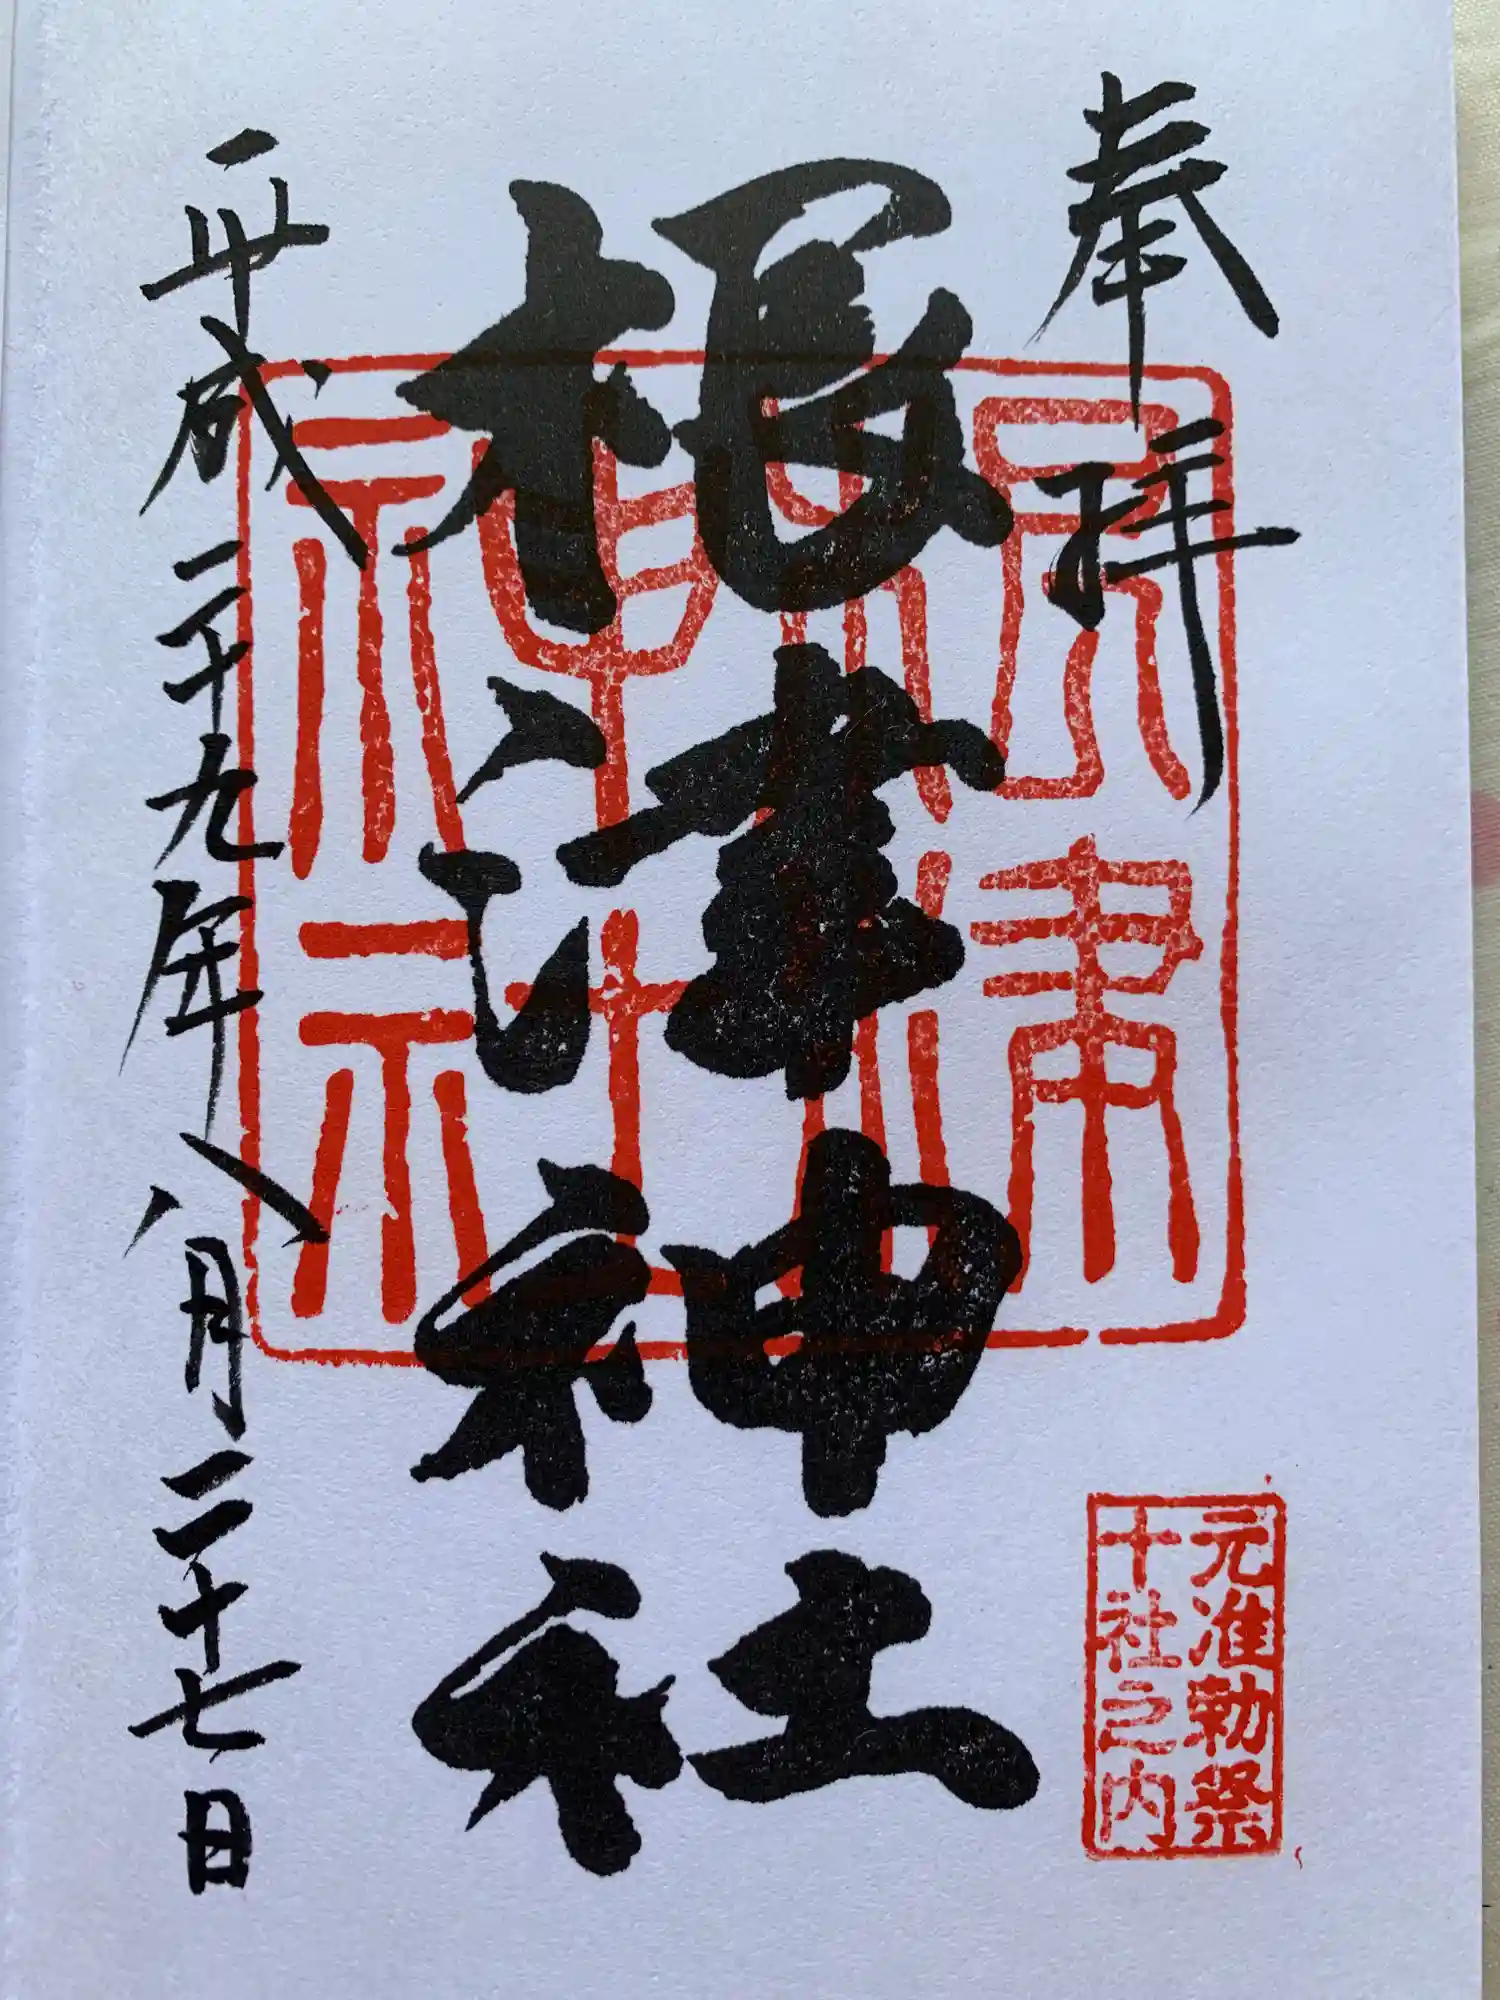 奉拝
根津神社
根津
神社
平成二十九年八月二十七日
元准勅祭
十社之内